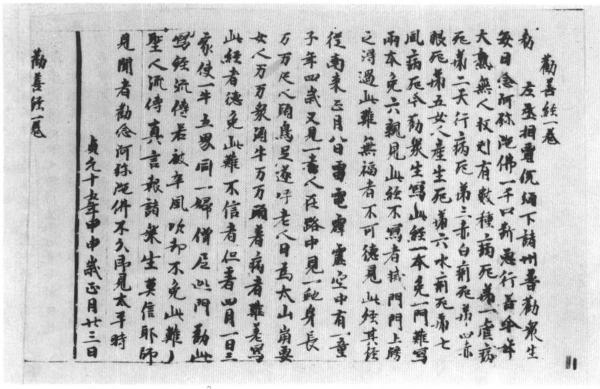 勸善經一卷
勑 左丞相賈耽頒下諸州普勸衆生
每日念阿弥陁佛一千口斷惡行善今年
大熟無人収刈有數種病死第一虐病
死苐二天行病死苐三赤白痢死苐四赤
眼死苐五女人產生死苐六水痢死苐七
風病死今勸衆生寫此經一本免一門難寫
兩本免六親見此經不寫者滅門門上牓
之得過此難無福者不可德見此經其經
從南來正月八日雷電霹靂空中有一童
子年四歲又見一老人在路中見一虵身長
万万尺人頭鳥足遂呼老人曰為太山崩要
女人万万衆須牛万万頭著病者難差寫
此經者德免此難不信者但看四月一日三
家使一牛五男同一婦僧尼巡門勸此
寫經流傳若被卒風吹却不免此難
聖人流傳真言報諸衆生莫信邪師
見聞者勸念阿弥陁佛不久即見太平時
貞元十九年甲申歲正月廿三日
勸善經一卷